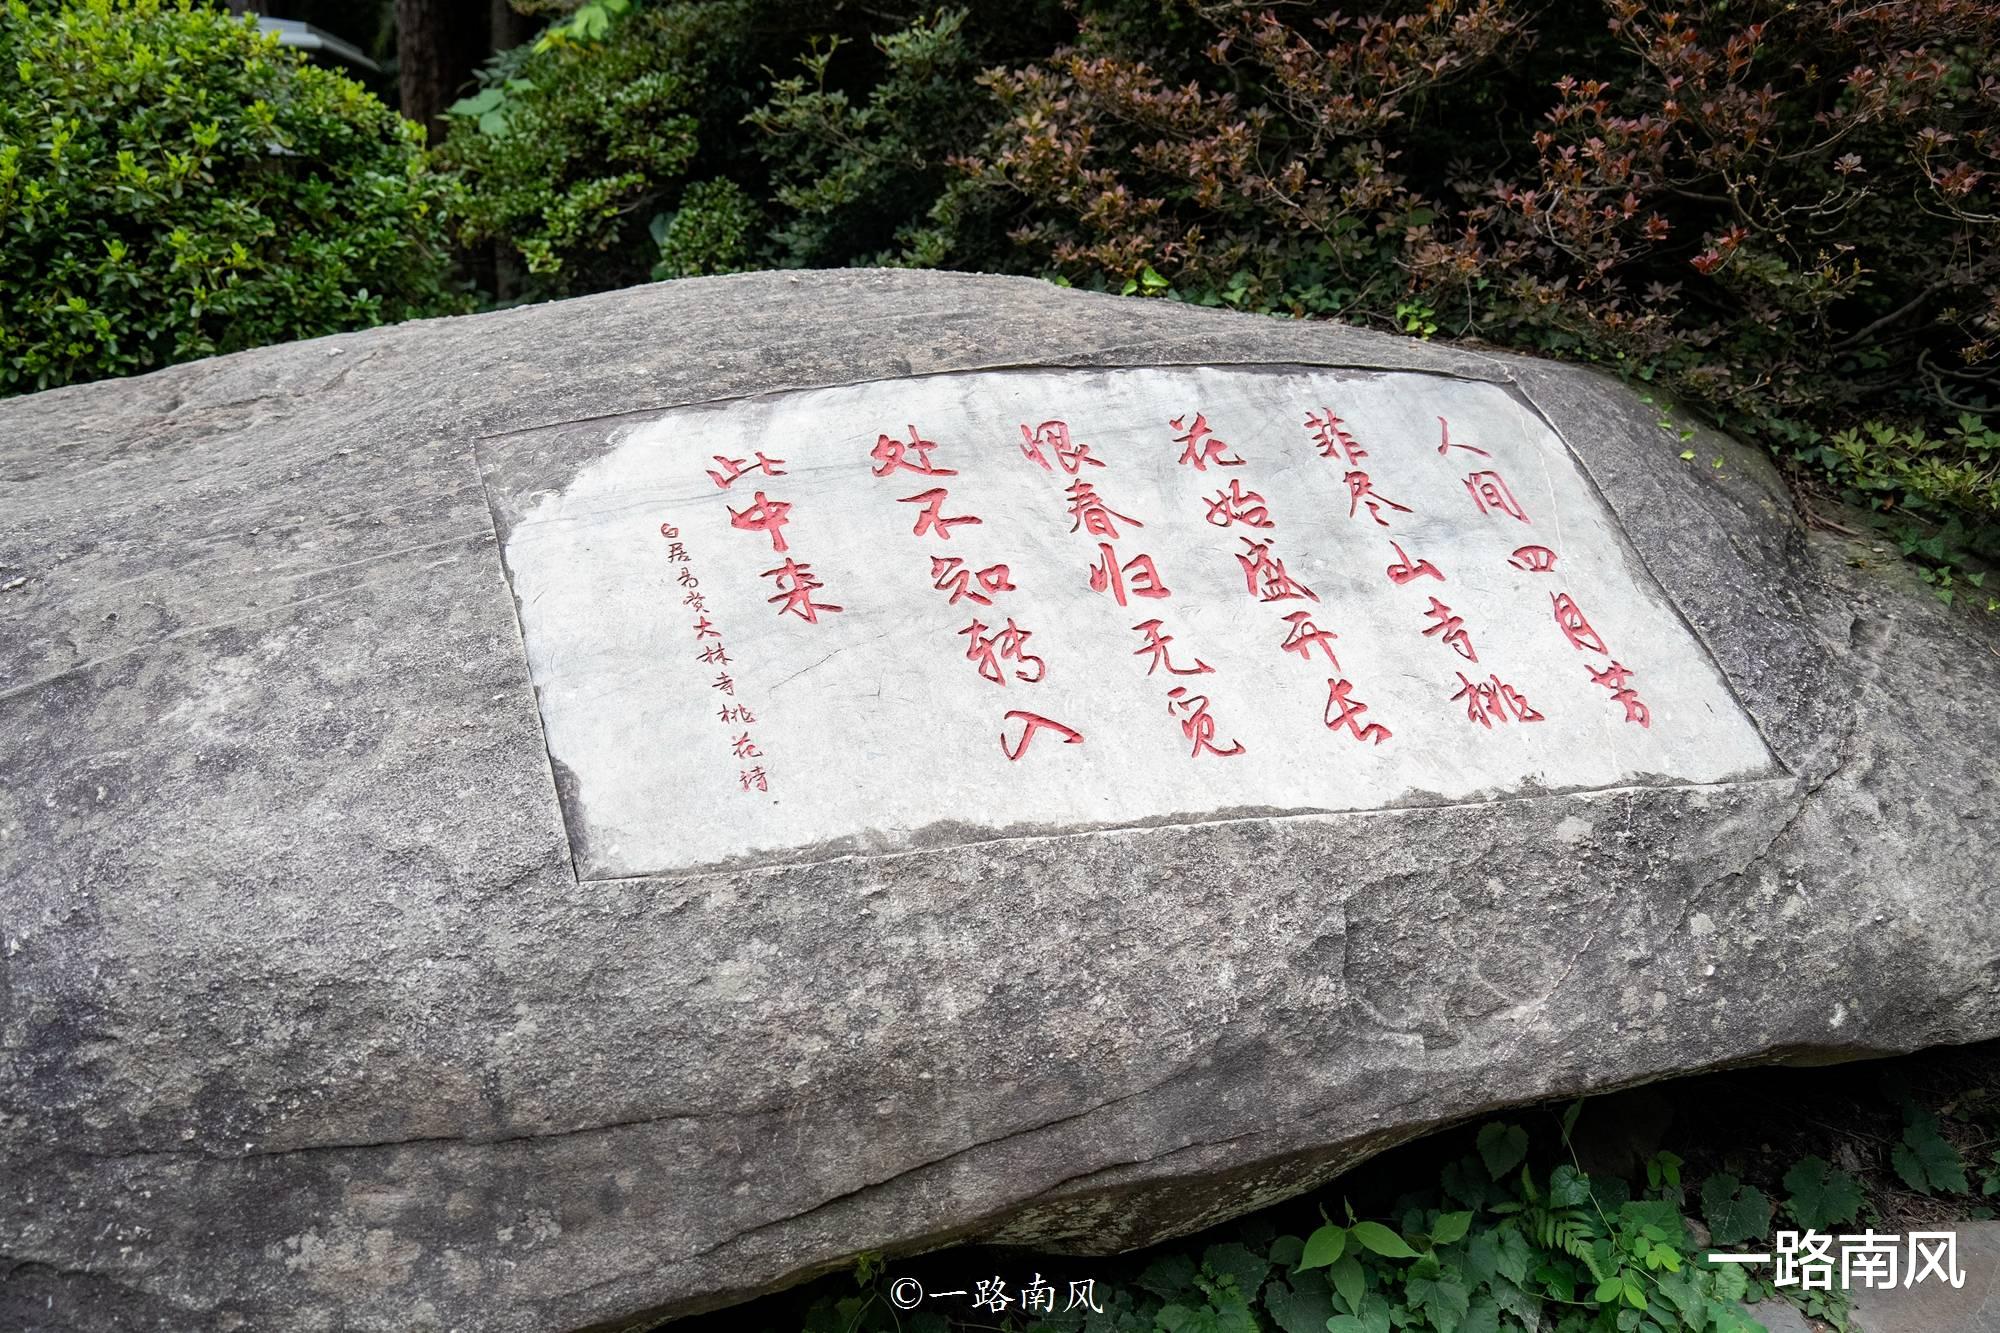 人间四月芳
菲尽山寺桃
花始盛开长
恨春归无觅
处不知转入
此中来
白居易赏大林寺桃花诗
©一路南风
一路南风